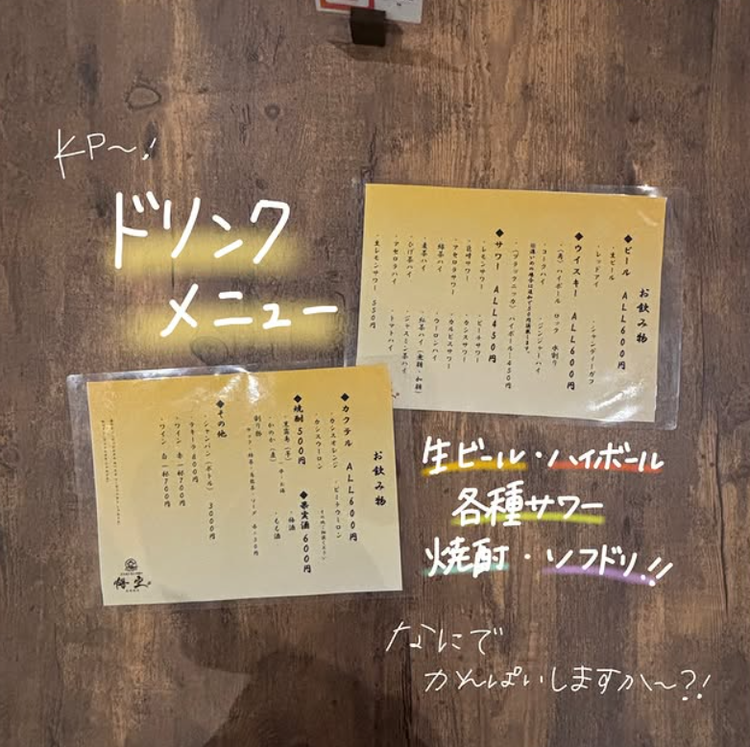 KP〜!
ドリンク
メニュー
お飲み物
◆ビール ALL600円
・生ビール ・シャンディーガフ
・レッドアイ
◆ウイスキー ALL600円
・(角)ハイボール ロック 水割り
・コークハイ ・ジンジャーハイ
・(ブラックニッカ)ハイボール450円
◆サワー ALL450円
・レモンサワー ・ピーチサワー
・巨峰サワー ・カシスサワー
・アセロラサワー ・カルピスサワー
・緑茶ハイ ・ウーロンハイ
・麦茶ハイ
・アセロラハイ ・トマトハイ
・生レモンサワー 550円
お飲み物
◆カクテル ALL600円
・カシスオレンジ ・ピーチウーロン
・カシスウーロン
◆焼酎 500円 ◆果実酒 600円
・黒霧島(芋) ・梅酒
・かのか(麦) ・もも酒
割り物
◆その他
・シャンパン(ボトル) 3000円
・テキーラ 600円
・ワイン 赤 一杯700円
・ワイン 白 一杯700円
生ビール・ハイボール
各種サワー
焼酎・ソフドリ!!
なにで
かんぱいしますか〜?!